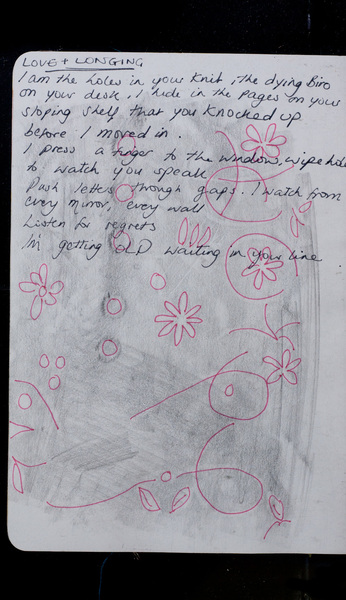 LOVE + LONGING
I am the holes in your knit, the dying Biro
on your desk, I hide in the pages on your
sloping shelf that you knocked up
before I moved in.
I press a finger to the window, wipe hole
to watch you speak
Push letters through gaps. I watch from
every mirror, every wall
Listen for regrets
I'm getting OLD waiting in your line